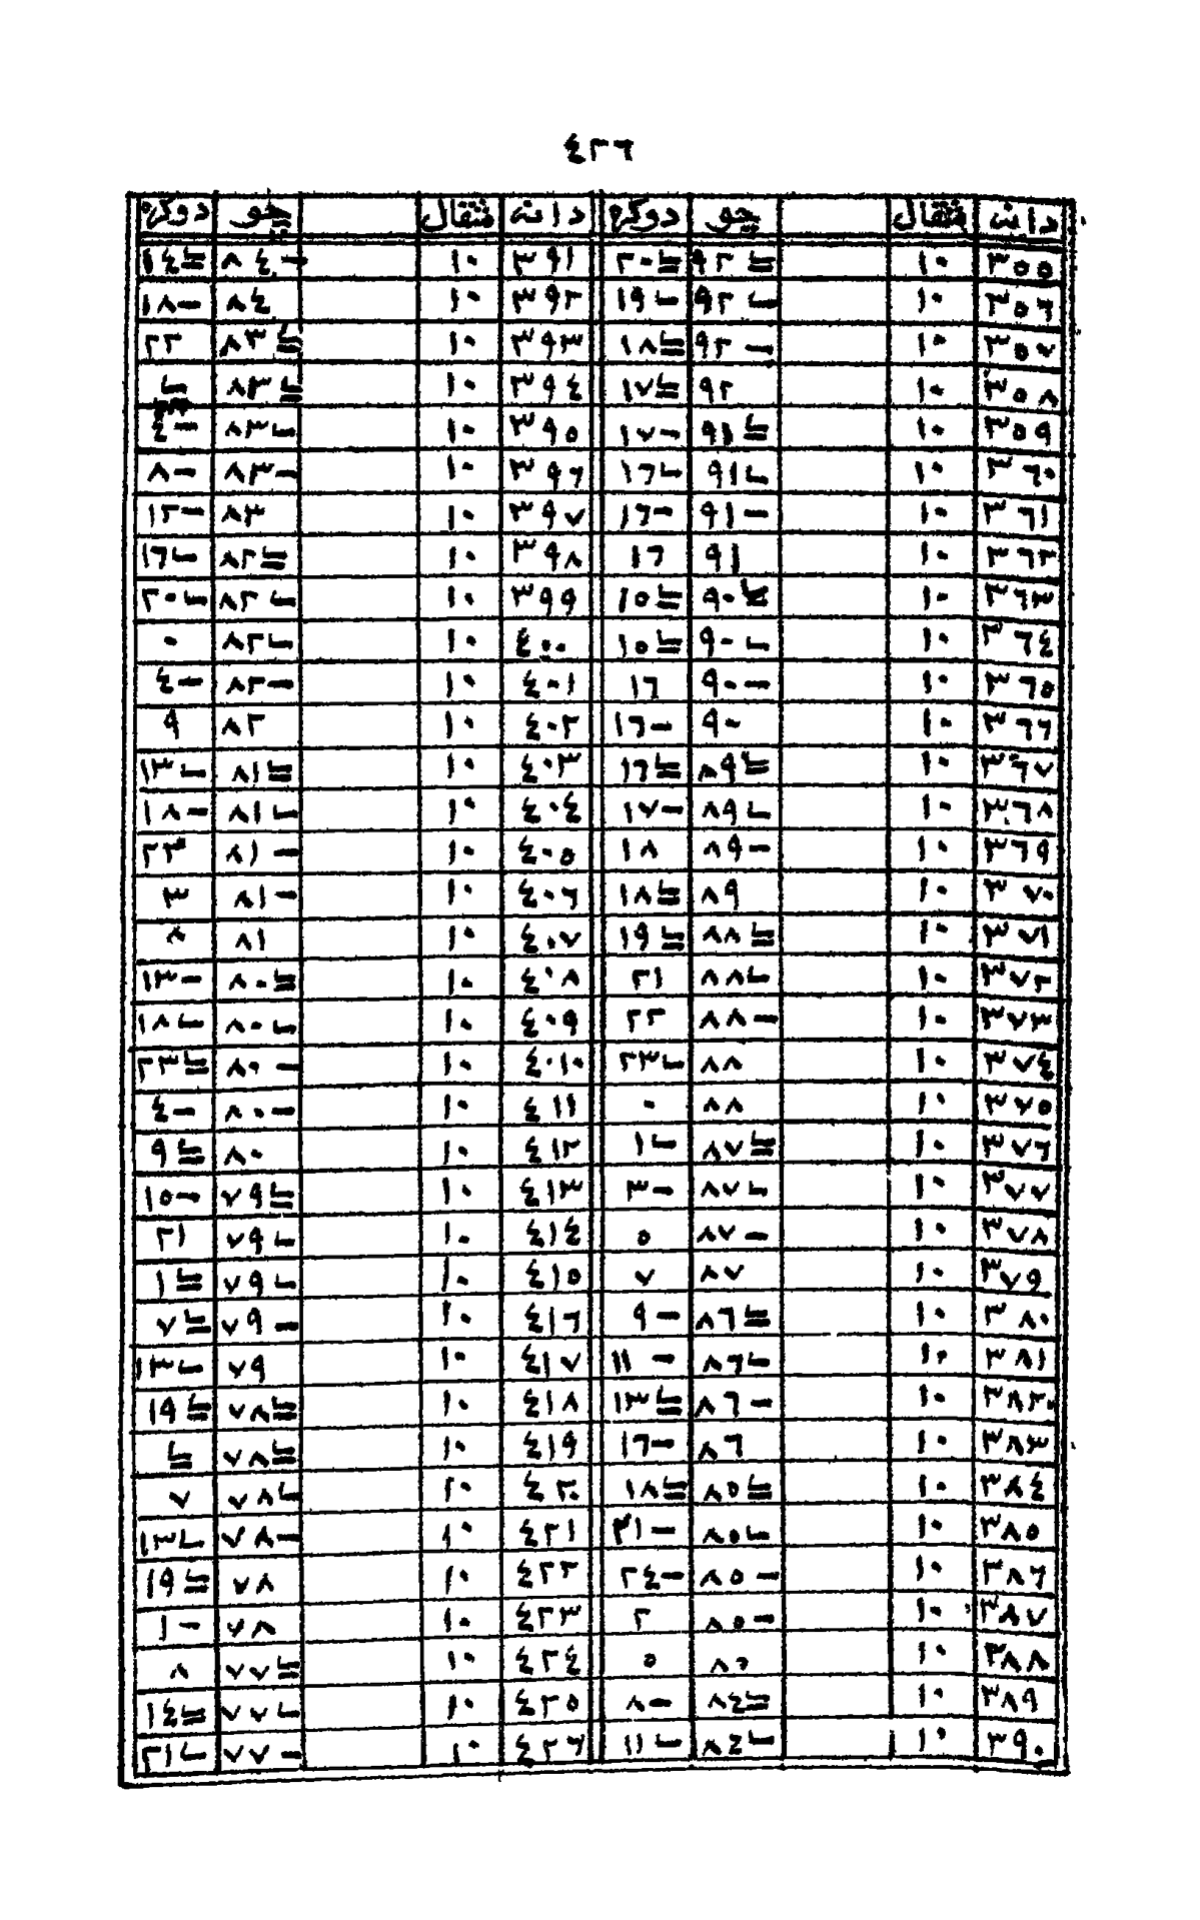 ٤٢٦
دانه مثقال چو دوكره دانه مثقال چو دوكره
٣٥٥ ١٠ ٩٢ ٢٠ ٣٩١ ١٠ ٨٤- ١٤
٣٥٦ ١٠ ٩٢ ١٩ ٣٩٢ ١٠ ٨٤ ١٨-
٣٥٧ ١٠ ٩٢- ١٨ ٣٩٣ ١٠ ٨٣ ٢٢
٣٥٨ ١٠ ٩٢ ١٧ ٣٩٤ ١٠ ٨٣
٣٥٩ ١٠ ٩١ ١٧- ٣٩٥ ١٠ ٨٣ ٤-
٣٦٠ ١٠ ٩١ ١٦ ٣٩٦ ١٠ ٨٣- ٨-
٣٦١ ١٠ ٩١- ١٦- ٣٩٧ ١٠ ٨٣ ١٢-
٣٦٢ ١٠ ٩١ ١٦ ٣٩٨ ١٠ ٨٢ ١٦
٣٦٣ ١٠ ٩٠ ١٥ ٣٩٩ ١٠ ٨٢ ٢٠
٣٦٤ ١٠ ٩٠ ١٥ ٤٠٠ ١٠ ٨٢ ٠
٣٦٥ ١٠ ٩٠- ١٦ ٤٠١ ١٠ ٨٢- ٤-
٣٦٦ ١٠ ٩٠ ١٦- ٤٠٢ ١٠ ٨٢ ٩
٣٦٧ ١٠ ٨٩ ١٦ ٤٠٣ ١٠ ٨١ ١٣
٣٦٨ ١٠ ٨٩ ١٧- ٤٠٤ ١٠ ٨١ ١٨-
٣٦٩ ١٠ ٨٩- ١٨ ٤٠٥ ١٠ ٨١- ٢٣
٣٧٠ ١٠ ٨٩ ١٨ ٤٠٦ ١٠ ٨١- ٣
٣٧١ ١٠ ٨٨ ١٩ ٤٠٧ ١٠ ٨١ ٨
٣٧٢ ١٠ ٨٨ ٢١ ٤٠٨ ١٠ ٨٠ ١٣-
٣٧٣ ١٠ ٨٨- ٢٢ ٤٠٩ ١٠ ٨٠ ١٨
٣٧٤ ١٠ ٨٨ ٢٣ ٤٠١٠ ١٠ ٨٠- ٢٣
٣٧٥ ١٠ ٨٨ ٠ ٤١١ ١٠ ٨٠- ٤-
٣٧٦ ١٠ ٨٧ ١ ٤١٢ ١٠ ٨٠ ٩
٣٧٧ ١٠ ٨٧ ٣- ٤١٣ ١٠ ٧٩ ١٥-
٣٧٨ ١٠ ٨٧- ٥ ٤١٤ ١٠ ٧٩ ٢١
٣٧٩ ١٠ ٨٧ ٧ ٤١٥ ١٠ ٧٩ ١
٣٨٠ ١٠ ٨٦ ٩- ٤١٦ ١٠ ٧٩- ٧
٣٨١ ١٠ ٨٦ ١١- ٤١٧ ١٠ ٧٩ ١٣
٣٨٢ ١٠ ٨٦- ١٣ ٤١٨ ١٠ ٧٨ ١٩
٣٨٣ ١٠ ٨٦ ١٦- ٤١٩ ١٠ ٧٨
٣٨٤ ١٠ ٨٥ ١٨ ٤٢٠ ١٠ ٧٨ ٧
٣٨٥ ١٠ ٨٥ ٢١- ٤٢١ ١٠ ٧٨- ١٣
٣٨٦ ١٠ ٨٥- ٢٤- ٤٢٢ ١٠ ٧٨ ١٩
٣٨٧ ١٠ ٨٥- ٢ ٤٢٣ ١٠ ٧٨ ١-
٣٨٨ ١٠ ٨٥ ٥ ٤٢٤ ١٠ ٧٧ ٨
٣٨٩ ١٠ ٨٤ ٨- ٤٢٥ ١٠ ٧٧ ١٤
٣٩٠ ١٠ ٨٤ ١١ ٤٢٦ ١٠ ٧٧- ٢١